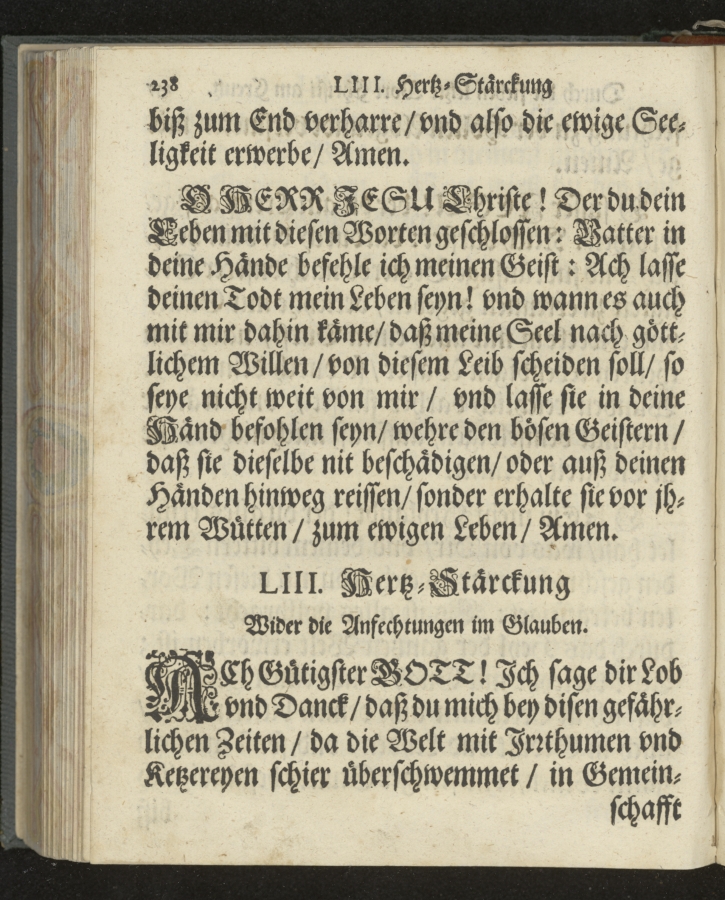 238 LIII. Hertz-Stärckung
biß zum End verharre/ vnd also die ewige See-
ligkeit erwerbe/ Amen.
O HERR JESU Christe! Der du dein
Leben mit diesen Worten geschlossen: Vatter in
deine Hände befehle ich meinen Geist: Ach lasse
deinen Todt mein Leben seyn! vnd wann es auch
mit mir dahin käme/ daß meine Seel nach gött-
lichem Willen/ von diesem Leib scheiden soll/ so
seye nicht weit von mir/ vnd lasse sie in deine
Händ befohlen seyn/ wehre den bösen Geistern/
daß sie dieselbe nit beschädigen/ oder auß deinen
Händen hinweg reissen/ sonder erhalte sie vor jh-
rem Wütten/ zum ewigen Leben/ Amen.
LIII. Hertz-Stärckung
Wider die Anfechtungen im Glauben.
ACh Gütigster GOTT! Ich sage dir Lob
vnd Danck/ daß du mich bey disen gefähr-
lichen Zeiten/ da die Welt mit Irrthumen vnd
Ketzereyen schier überschwemmet/ in Gemein-
schafft